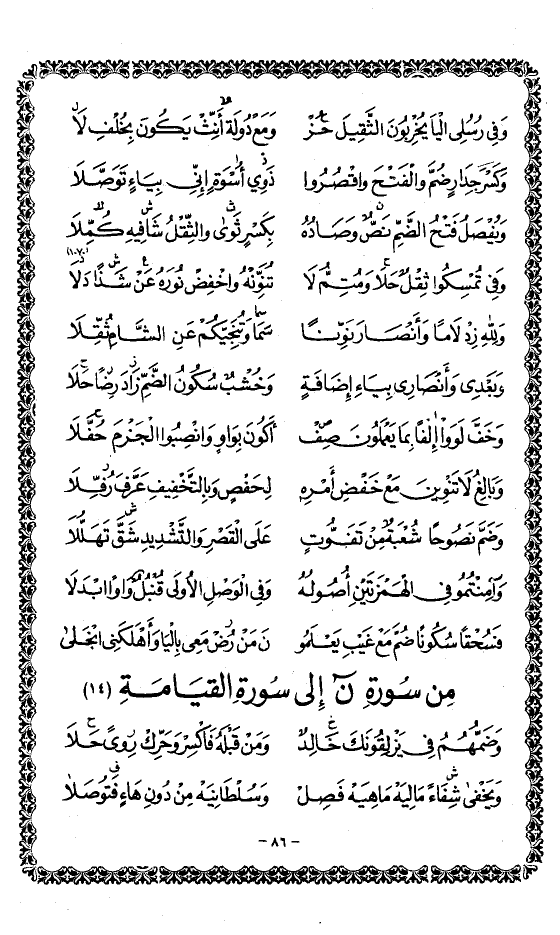 وَفِي رُسُلِي الْيَا يُخْرِبُونَ الثَّقِيلَ حُزْ وَمَعْ دُولَةَ أَنِّثْ يَكُونَ بِخُلْفِ لَا
وَكَسْرَ جِدَارٍ ضُمَّ وَالْفَتْحَ وَاقْصُرُوا ذَوِي أُسْوَةٍ إِنِّي بِيَاءٍ تَوَصَّلَا
وَيُفْصَلُ فَتْحُ الضَّمِّ نَصٌّ وَصَادُهُ بِكَسْرٍ ثَوَى وَالثِّقْلُ شَافِيهِ كُمِّلَا
وَفِي تُمْسِكُوا ثِقْلٌ حَلَا وَمُتِمُّ لَا تُنَوِّنْهُ وَاخْفِضْ نُورَهُ عَنْ شَذًا دَلَا
(١٠٧٠)
وَلِلهِ زِدْ لَامًا وَأَنْصَارَ نَوِّنًا سَمَا وَتُنَجِّيكُمْ عَنِ الشَّامِ ثُقِّلَا
وَبَعْدِي وَأَنْصَارِي بِيَاءِ إِضَافَةٍ وَخُشْبٌ سُكُونُ الضَّمِّ زَادَ رِضًا حَلَا
وَخَفَّ لَوَوْا إِلْفًا بِمَا يَعْمَلُونَ صِفْ أَكُونَ بِوَاوٍ وَانْصِبُوا الْجَزْمَ حُفَّلَا
وَبَالِغُ لَا تَنْوِينَ مَعْ خَفْضِ أَمْرِهِ لِحَفْصٍ وَبِالتَّخْفِيفِ عَرَّفَ رُفِّلَا
وَضَمَّ نَصُوحًا شُعْبَةٌ مِنْ تَفَوُّتٍ عَلَى الْقَصْرِ وَالتَّشْدِيدِ شَقَّ تَهَلُّلَا
وَآمِنْتُمُو فِي الْهَمْزَتَيْنِ أُصُولُهُ وَفِي الْوَصْلِ الْأُولَى قُنْبُلٌ وَاوًا ابْدَلَا
فَسُحْقًا سُكُونًا ضُمَّ مَعْ غَيْبِ يَعْلَمُو نَ مَنْ رُضْ مَعِي بِالْيَا وَأَهْلَكَنِي انْجَلَى
مِن سُورَةِ نٓ إِلَى سُورَةِ الْقِيَامَةِ (١٤)
وَضَمُّهُمُ فِي يَزْلِقُونَكَ خَالِدٌ وَمَنْ قَبْلَهُ فَاكْسِرْ وَحَرِّكْ رِوًى حَلَا
وَيَخْفَى شِفَاءً مَالِيَهْ مَاهِيَهْ فَصِلْ وَسُلْطَانِيَهْ مِنْ دُونِ هَاءٍ فَتُوصَلَا
- ٨٦ -